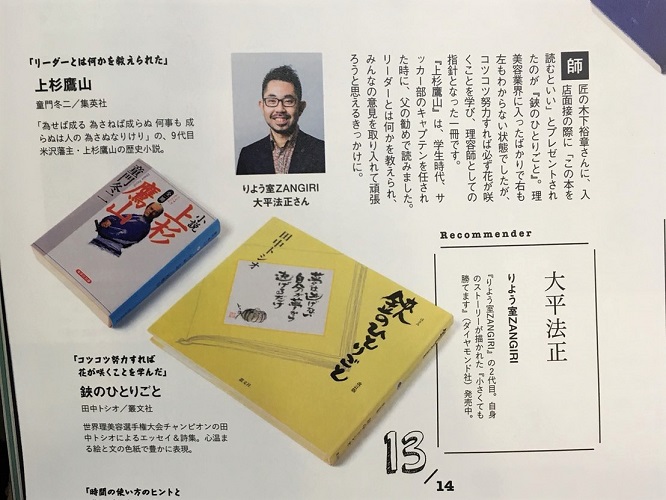 「リーダーとは何かを教えられた」
上杉鷹山
童門冬二／集英社
「為せば成る 為さねば成らぬ 何事も 成
らぬは人の 為さぬなりけり」の、9代目
米沢藩主・上杉鷹山の歴史小説。
りよう室ZANGIRI
大平法正さん
師
匠の木下裕章さんに、入
店面接の際に「この本を
読むといい」とプレゼントされ
たのが『鋏のひとりごと』。理
美容業界に入ったばかりで右も
左もわからない状態でしたが、
コツコツ努力すれば必ず花が咲
くことを学び、理容師としての
指針となった一冊です。
『上杉鷹山』は、学生時代、サ
ッカー部のキャプテンを任され
た時に、父の勧めで読みました。
リーダーとは何かを教えられ、
みんなの意見を取り入れて頑張
ろうと思えるきっかけに。
小説
上杉
鷹山
童門冬二
田中トシオ
夢は逃げない
自分が夢から
逃げるだけ
鋏のひとりごと
「コツコツ努力すれば
花が咲くことを学んだ」
鋏のひとりごと
田中トシオ／叢文社
世界理美容選手権大会チャンピオンの田
中トシオによるエッセイ＆詩集。心温ま
る絵と文の色紙で豊かに表現。
Recommender
大平法正
りよう室ZANGIRI
『りよう室ZANGIRI』の2代目。自身
のストーリーが描かれた『小さくても
勝てます』（ダイヤモンド社）発売中。
13/14
「時間の使い方のヒントと